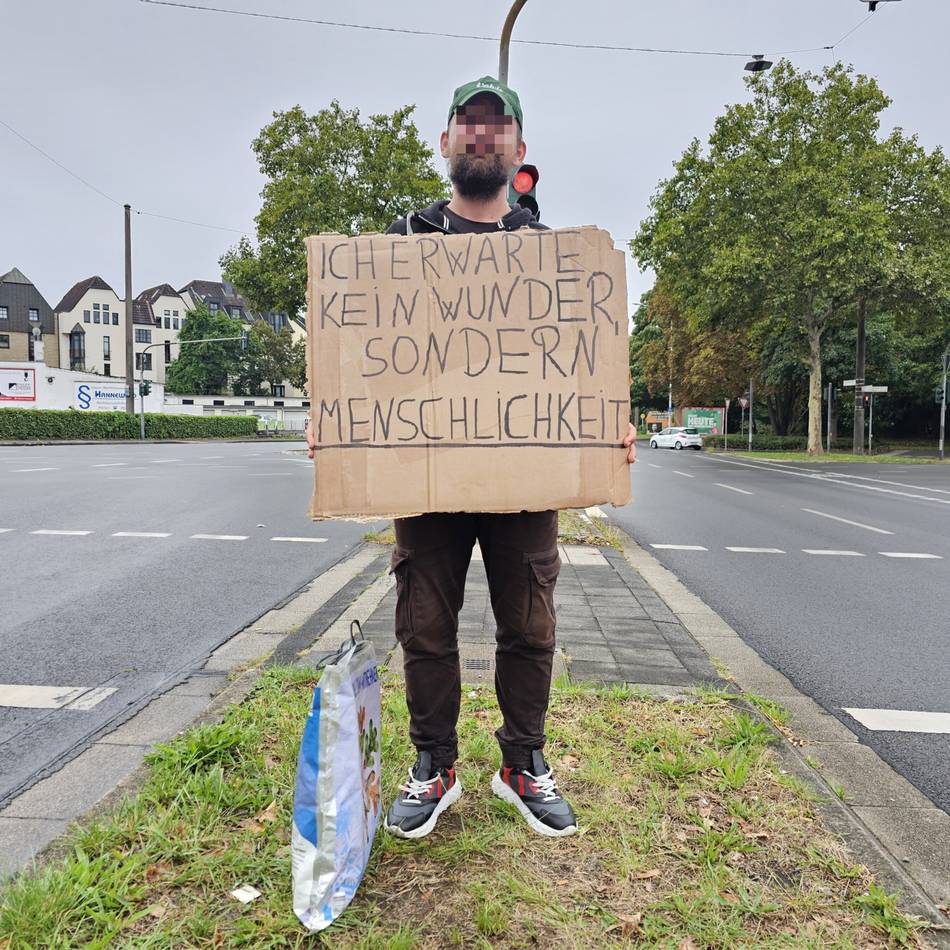 ICH ERWARTE
KEIN WUNDER,
SONDERN
MENSCHLICHKEIT
HEUTE